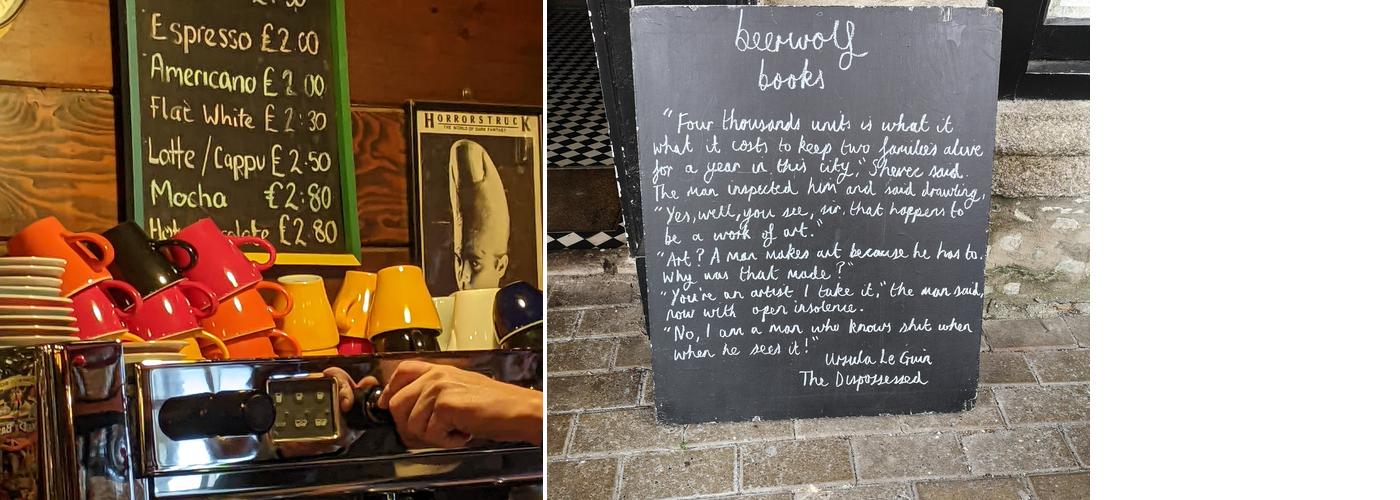 Espresso £2.00
Americano £2.00
Flat White £2.30
Latte/Cappu £2.50
Mocha £2.80
£2.80
HORRORSTRUCK
THE WORLD OF DARK FANTASY
beerwolf
books
"Four thousands units is what it
what it costs to keep two families alive
for a year in this city," Shevec said.
The man inspected him and said drawling,
"Yes, well, you see, sir, that happens to
be a work of art."
"Art? A man makes art because he has to.
Why was that made?"
"You're an artist I take it," the man said,
now with open insolence.
"No, I am a man who knows shit when
when he sees it!"
Ursula Le Guin
The Dispossessed